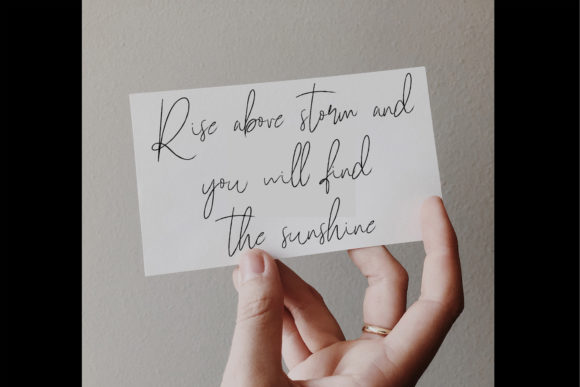 Rise above storm and
you will find
the sunshine